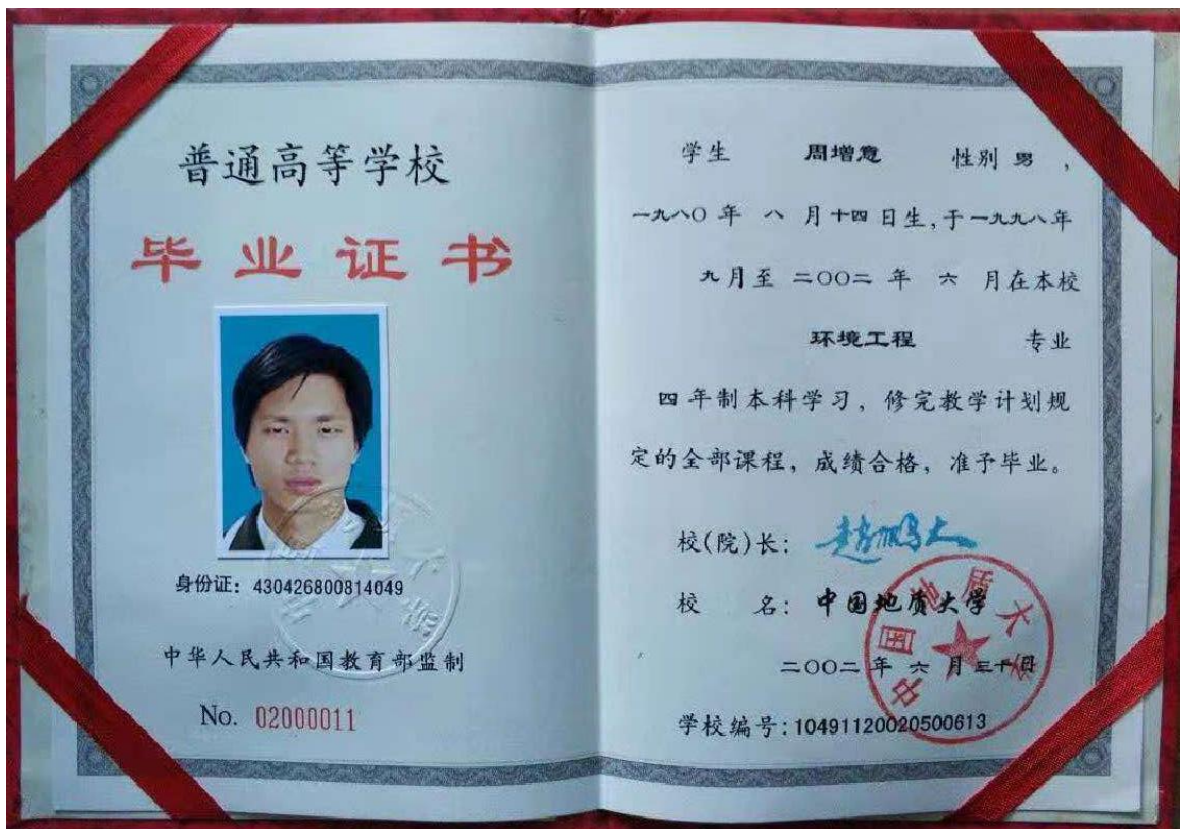 普通高等学校
毕业证书
身份证：430426800814049
中华人民共和国教育部监制
No. 02000011
学生 周增意 性别 男，
一九八〇年 八 月十四日生，于一九九八年
九月至 二〇〇二 年 六 月在本校
环境工程 专业
四 年制本科学习，修完教学计划规
定的全部课程，成绩合格，准予毕业。
校(院)长：赵鹏大
校 名：中国地质大学
二〇〇二年 六 月三十日
学校编号：10491120020500613
中国地质大学